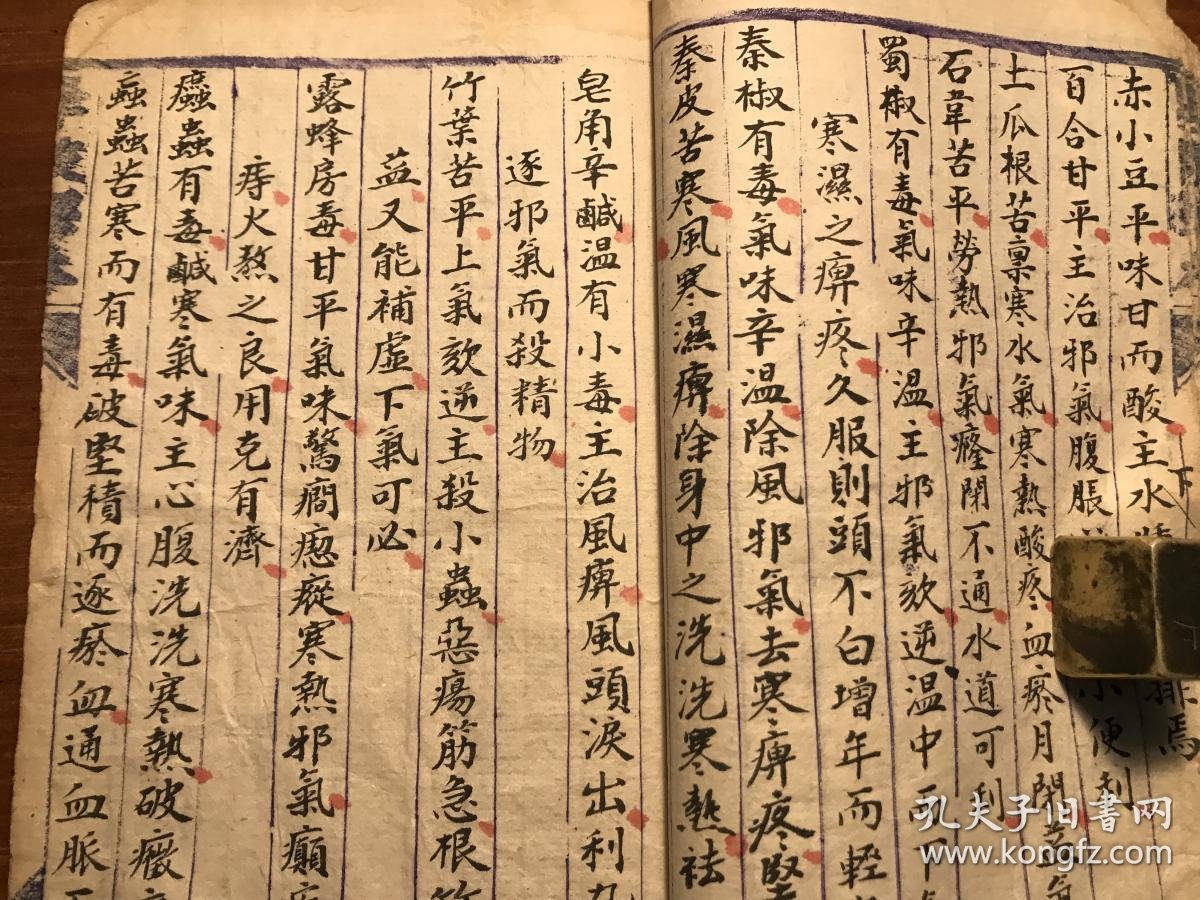 赤小豆平味甘而酸主水下排焉
百合甘平主治邪氣腹脹小便利
土瓜根苦稟寒水氣寒熱酸疼血瘀月閉益氣
石韋苦平勞熱邪氣癃閉不通水道可利
蜀椒有毒氣味辛溫主邪氣欬逆溫中而下
寒濕之痹疼久服則頭不白增年而輕
秦椒有毒氣味辛溫除風邪氣去寒痹疼堅
秦皮苦寒風寒濕痹除身中之洗洗寒熱祛
皂角辛鹹温有小毒主治風痹風頭淚出利九
逐邪氣而殺精物
竹葉苦平上氣欬逆主殺小蟲惡瘍筋急根竹
益又能補虛下氣可必
露蜂房毒甘平氣味驚癇瘛瘲寒熱邪氣癲疾
痔火熬之良用克有濟
蟅蟲有毒鹹寒氣味主心腹洗洗寒熱破癥
蝱蟲苦寒而有毒破堅積而逐瘀血通血脈
孔夫子旧書网
www.kongfz.com